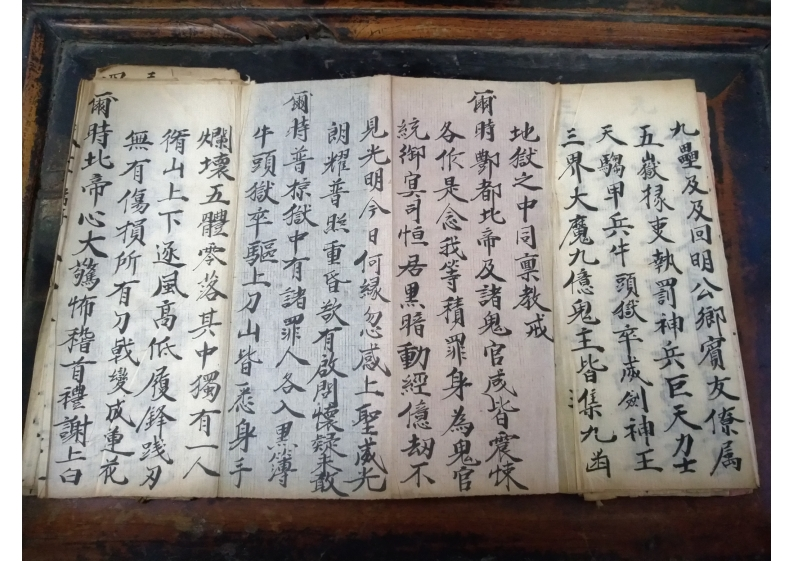 九壘及及回明公卿賓友僚属
五嶽掾吏執罰神兵巨天力士
天騶甲兵牛頭獄卒威劍神王
三界大魔九億鬼王皆集九幽
地獄之中同禀教戒
爾時酆都北帝及諸鬼官咸皆震悚
各作是念我等積罪身為鬼官
統御冥司恒居黒暗動經億劫不
見光明今日何緣忽感上聖威光
朗耀普照重昏欲有啟問懷疑未敢
爾時普掠獄中有諸罪人各入黒簿
牛頭獄卒驅上刀山皆悉身手
爛壞五體零落其中獨有一人
循山上下逐風高低履鋒践刃
無有傷損所有刀戟變成蓮花
爾時北帝心大驚怖稽首禮謝上白